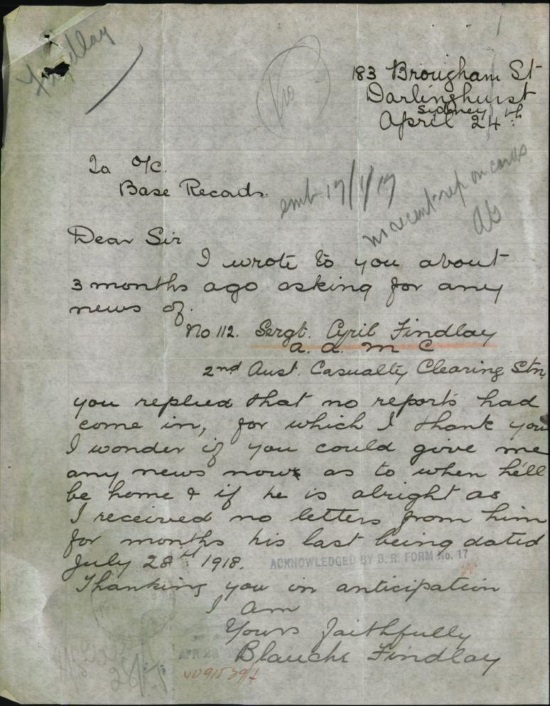 Findlay
183 Brougham St
Darlinghurst
Sydney
April 24th
To O/C.
Base Records
emb 17/1/17
no recent rep on cards
Dear Sir
I wrote to you about
3 months ago asking for any
news of
No 112. Sergt. Cyril Findlay
A. A. M C
2nd Aust. Casualty Clearing Stn,
you replied that no reports had
come in, for which I thank you
I wonder if you could give me
any news now as to when he'll
be home & if he is alright as
I received no letters from him
for months his last being dated
July 28th 1918.
ACKNOWLEDGED BY B. R. FORM No. 17
Thanking you in anticipation
I am
Yours faithfully
Blanche Findlay
APR 28